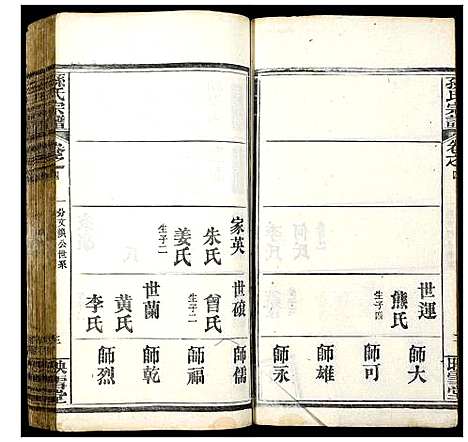 孫氏宗譜
卷之四
世運
熊氏
生子四
師大
師可
師雄
師永
家英
朱氏
姜氏
生子二
世碩
曾氏
生子二
世蘭
黄氏
李氏
師儒
師福
師乾
師烈
孫氏宗譜
卷之四
一分文煥公世系
三
映雪堂